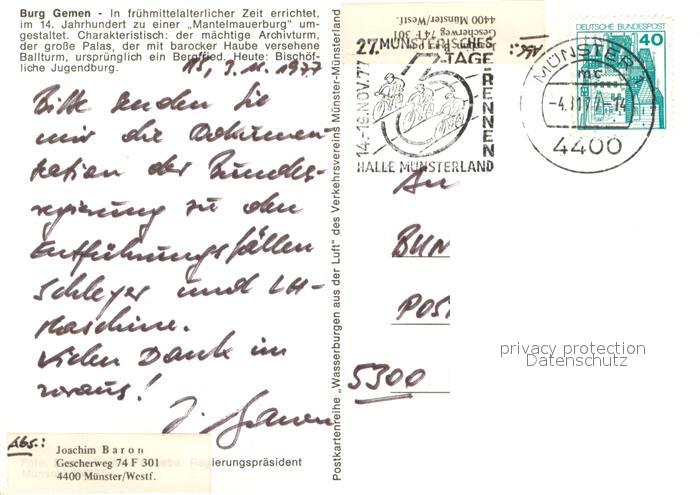 Burg Gemen - In frühmittelalterlicher Zeit errichtet,
im 14. Jahrhundert zu einer „Mantelmauerburg" um-
gestaltet. Charakteristisch: der mächtige Archivturm,
der große Palas, der mit barocker Haube versehene
Ballturm, ursprünglich ein Bergfried. Heute: Bischöf-
liche Jugendburg.
11. 1977
Bitte senden Sie
mir die Dokumen-
tation der Bundes-
regierung zu den
Entführungsfällen
Schleyer und LH-
Maschine.
Vielen Dank im
voraus!
J. Baron
Abs.:
Joachim Baron
Gescherweg 74 F 301
4400 Münster/Westf.
Regierungspräsident
Postkartenreihe „Wasserburgen aus der Luft" des Verkehrsvereins Münster-Münsterland
Gescherweg 74 F 301
4400 Münster/Westf.
Abs.:
27. MÜNSTERSCHES
6
TAGE
RENNEN
14.-19. NOV. 77
HALLE MÜNSTERLAND
MÜNSTER
mc
-4.11.77-14
4400
DEUTSCHE BUNDESPOST
40
An
BUN
POS
5300
privacy protection
Datenschutz